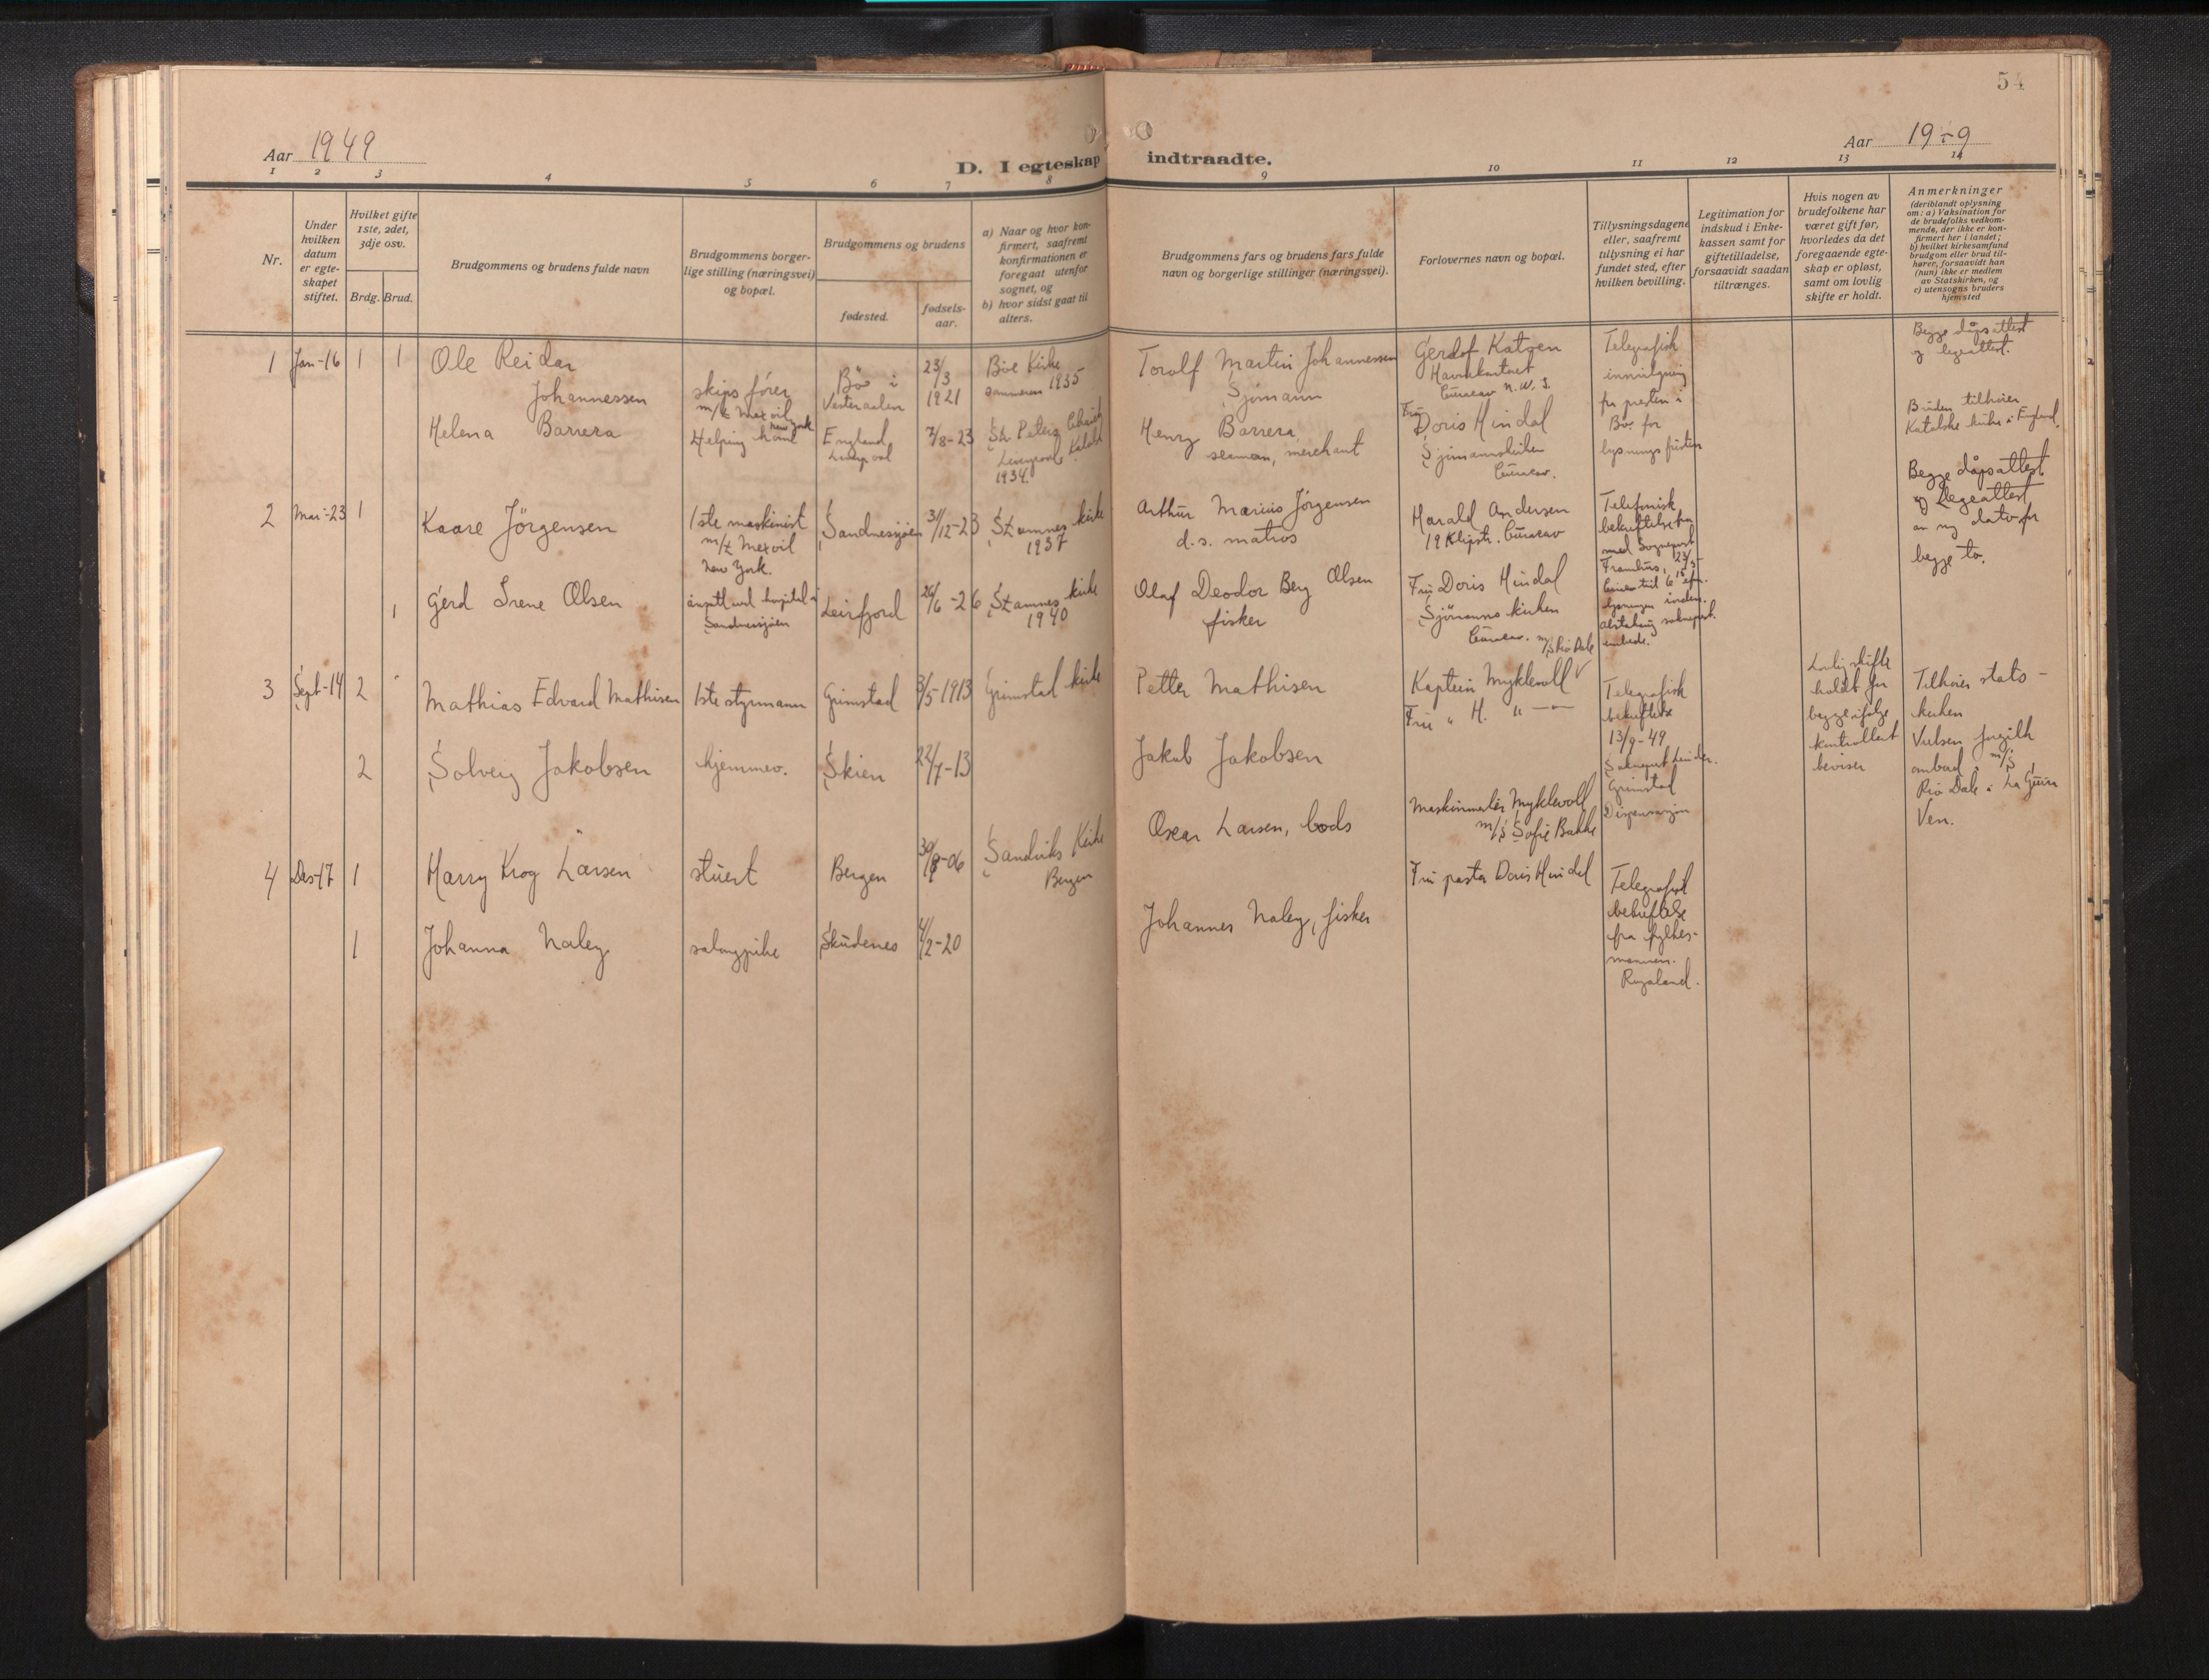 54
Aar 1949
Aar 19-9
D. I egteskap indtraadte.
1 2 3 4 5 6 7 8 9 10 11 12 13 14
Nr.
Under
hvilken
datum
er egte-
skapet
stiftet.
Hvilket gifte
1ste, 2det,
3dje osv.
Brdg. Brud.
Brudgommens og brudens fulde navn
Brudgommens borger-
lige stilling (næringsvei)
og bopæl.
Brudgommens og brudens
fødested.
fødsels-
aar.
a) Naar og hvor kon-
firmert, saafremt
konfirmationen er
foregaat utenfor
sognet, og
b) hvor sidst gaat til
alters.
Brudgommens fars og brudens fars fulde
navn og borgerlige stillinger (næringsvei).
Forlovernes navn og bopæl.
Tillysningsdagene
eller, saafremt
tillysning ei har
fundet sted, efter
hvilken bevilling.
Legitimation for
indskud i Enke-
kassen samt for
giftetilladelse,
forsaavidt saadan
tiltrænges.
Hvis nogen av
brudefolkene har
været gift før,
hvorledes da det
foregaaende egte-
skap er opløst,
samt om lovlig
skifte er holdt.
Anmerkninger
(deriblandt oplysning
om: a) Vaksination for
de brudefolks vedkom-
mende, der ikke er kon-
firmert her i landet;
b) hvilket kirkesamfund
brudgom eller brud til-
hører, forsaavidt han
(hun) ikke er medlem
av Statskirken, og
c) utensogns bruders
hjemsted
1 Jan-16 1 1
Ole Reidar
Johannessen
skipsfører
m/t Mexoil
New York
Bö i
Vesteraalen
23/3
1921
Böe Kirke
sommeren 1935
Torolf Martin Johannessen
Sjömann
Gerdof Katsen
Havnekontoret
Curacao N.W.I.
Telegrafisk
fra presten i
Bö for
Begge dåpsattest
og legeattest.
Helena Barrera
Helping home
England
Liverpool
7/8-23
St. Peters Church
Liverpool Katolsk
1934.
Henry Barrera
seaman, merchant
Fru
Doris Hindal
Sjömannskirken
Curacao.
Bruden tilhører
Katolske kirke i England.
2 Mai-23 1
Kaare Jörgensen
1ste maskinist
m/t Mexoil
New York.
Sandnessjöen
31/12-23
Stamnes kirke
1937
Arthur Marius Jörgensen
d.s. matros
Harald Andersen
19 Klipstr. Curacao
Telefonisk
bekreftelse fra
Begge dåpsattest
og Legeattest
av ny dato for
begge to.
1
Gerd Irene Olsen
ansatt ved hospital i
Sandnessjöen
Leirfjord
26/6-26
Stamnes kirke
1940
Olaf Deodor Berg Olsen
fisker
Fru Doris Hindal
Sjömannskirken
Curacao.
3 Sept-14 2
Mathias Edvard Mathisen
1ste styrmann
Grimstad
3/5-1913
Grimstad kirke
Petter Mathisen
m/S Rio Dale
Kaptein Myklevoll
Fru " H. "
Telegrafisk
bekreftelse
13/9-49
Grimstad
Lovlig skifte
holdt for
begge ifølge
kontrollert
beviser
Tilhører stats-
kirken
Vielsen foregikk
ombord i m/S
Rio Dale i La Guira
Ven.
2
Solveig Jakobsen
hjemmev.
Skien
22/7-13
Jakob Jakobsen
4 Des-17 1
Harry Krog Larsen
stuert
Bergen
30/8-06
Sandviks Kirke
Bergen
Oscar Larsen, bods
Maskinmester Myklevoll
m/S Sofie Bakke
Fru pastor Doris Hindal
Telegrafisk
bekreftelse
fra fylkes-
mannen.
Rogaland.
1
Johanna Naley
salongpike
Skudenes
4/2-20
Johannes Naley, fisker